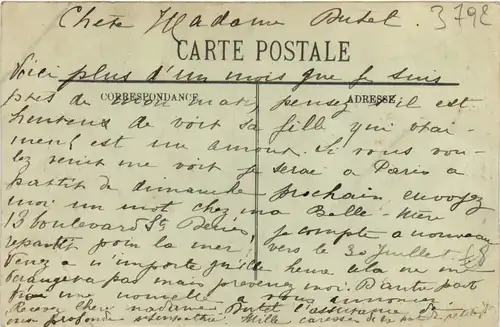 Chère Madame Butel 3792
CARTE POSTALE
Voici plus d'un mois que je suis
CORRESPONDANCE
ADRESSE
près de mon mari, pensez s'il est
heureux de voir sa fille qui vrai-
ment est un amour. Si vous vou-
lez venir me voir je serai à Paris à
partir de dimanche prochain envoyez
moi un mot chez ma Belle-Mère
13 boulevard St Denis, je compte à nouveau
repartir pour la mer vers le 30 Juillet
Venez à n'importe qu'elle heure cela ne me
dérangera pas mais prévenez moi. D'autre part
une nouvelle à vous annoncer
Recevez chère madame Butel l'assurance de
ma profonde sympathie. Mille caresses de ma petite